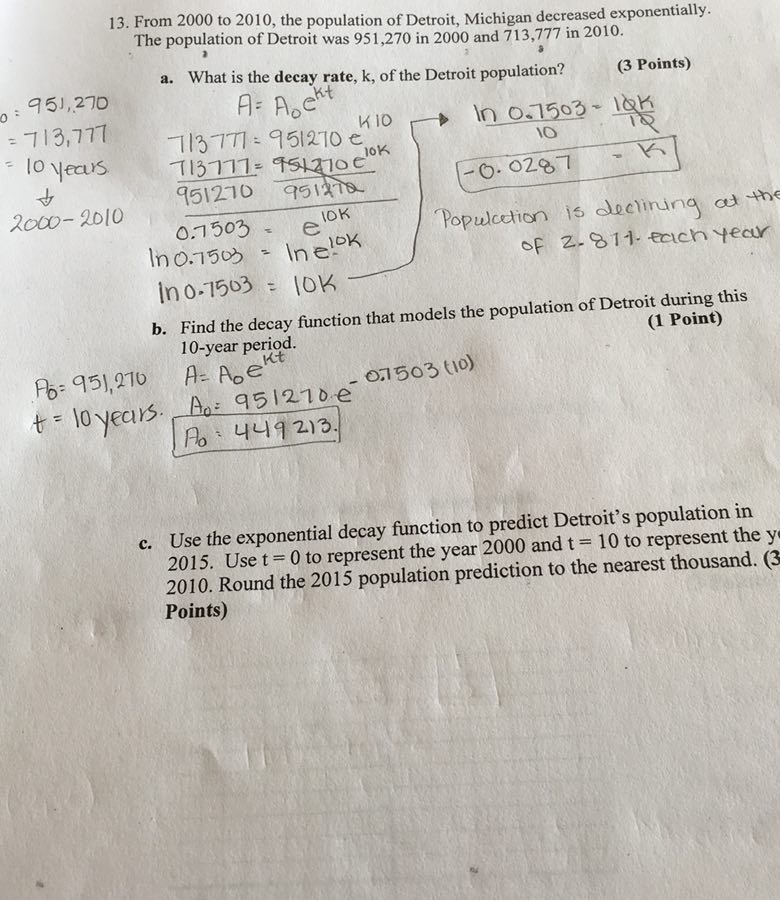 13. From 2000 to 2010, the population of Detroit, Michigan decreased exponentially.
The population of Detroit was 951,270 in 2000 and 713,777 in 2010.
a. What is the decay rate, k, of the Detroit population? (3 Points)
o = 951,270
= 713,777
= 10 years
↓
2000-2010
A = A₀e^kt
713777 = 951270 e^K10
713777 = 951270 e^10K
951270 951270
0.7503 = e^10K
ln 0.7503 = ln e^10K
ln 0.7503 = 10K
ln 0.7503 = 10K
10 10
-0.0287 = K
Population is declining at the
of 2.87% each year
b. Find the decay function that models the population of Detroit during this
10-year period. (1 Point)
A₀ = 951,270
t = 10 years.
A = A₀e^kt
A₀ = 951270.e^-0.7503(10)
A₀ = 449213.
c. Use the exponential decay function to predict Detroit's population in
2015. Use t = 0 to represent the year 2000 and t = 10 to represent the
2010. Round the 2015 population prediction to the nearest thousand. (3
Points)